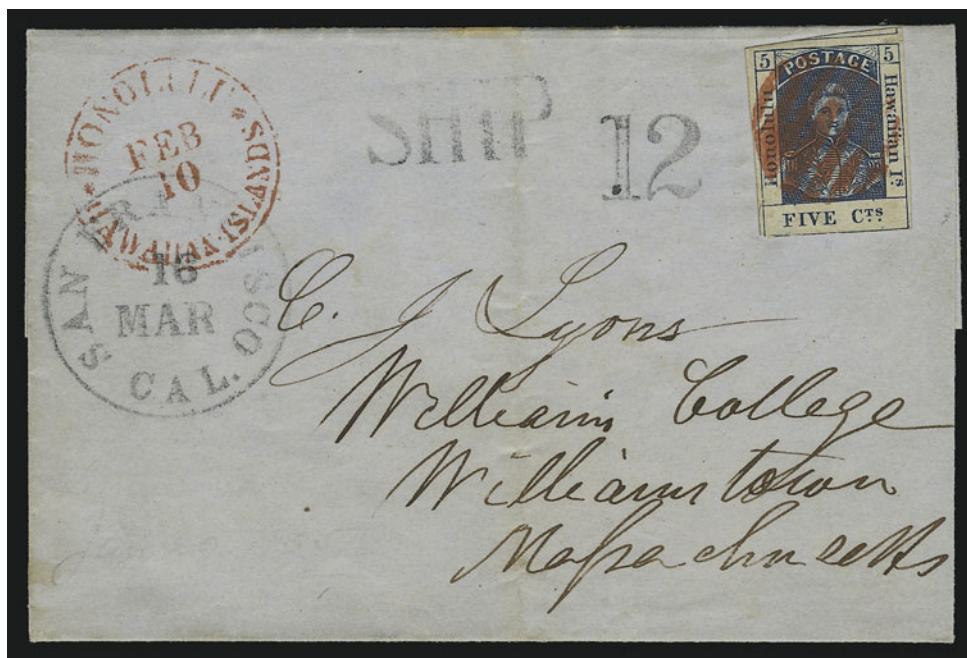 HONOLULU * HAWAIIAN ISLANDS *
FEB
10
SAN FRANCISCO
16
MAR
CAL.
SHIP
12
5 POSTAGE 5
Honolulu
Hawaiian Is.
FIVE CTS.
C. J Lyons
William College
Williamstown
Massachusetts